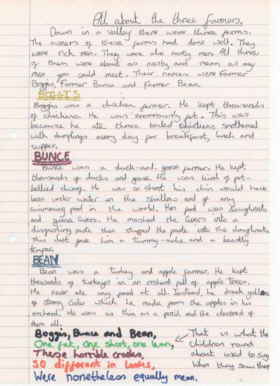 All about the three farmers.
Down in a valley there were three farms.
The owners of these farms had done well. They
were rich men. They were also nasty men. All three
of them were about as nasty and mean as any
men you could meet. Their names were Farmer
Boggis, Farmer Bunce and Farmer Bean.
BOGGIS
Boggis was a chicken farmer. He kept thousands
of chickens. He was enormously fat. This was
because he ate three boiled chickens smothered
with dumplings every day for breakfast, lunch and
supper.
BUNCE
Bunce was a duck-and-goose farmer. He kept
thousands of ducks and geese. He was kind of pot-
bellied dwarf. He was so short his chin would have
been under water in the shallow end of any
swimming pool in the world. His food was doughnuts
and goose livers. He mashed the livers into a
disgusting paste then stuffed the paste into the doughnuts.
This diet gave him a tummy-ache and a beastly
temper.
BEAN
Bean was a turkey and apple farmer. He kept
thousands of turkeys in an orchard full of apple trees.
He never ate any food at all. Instead, he drank gallons
of strong cider which he made from the apples in his
orchard. He was as thin as a pencil and the cleverest of
them all.
Boggis, Bunce and Bean,
One fat, One short, one lean,
These horrible crooks,
SO different in looks,
Were nonetheless equally mean.
That is what the
children round
about used to sing
when they saw them